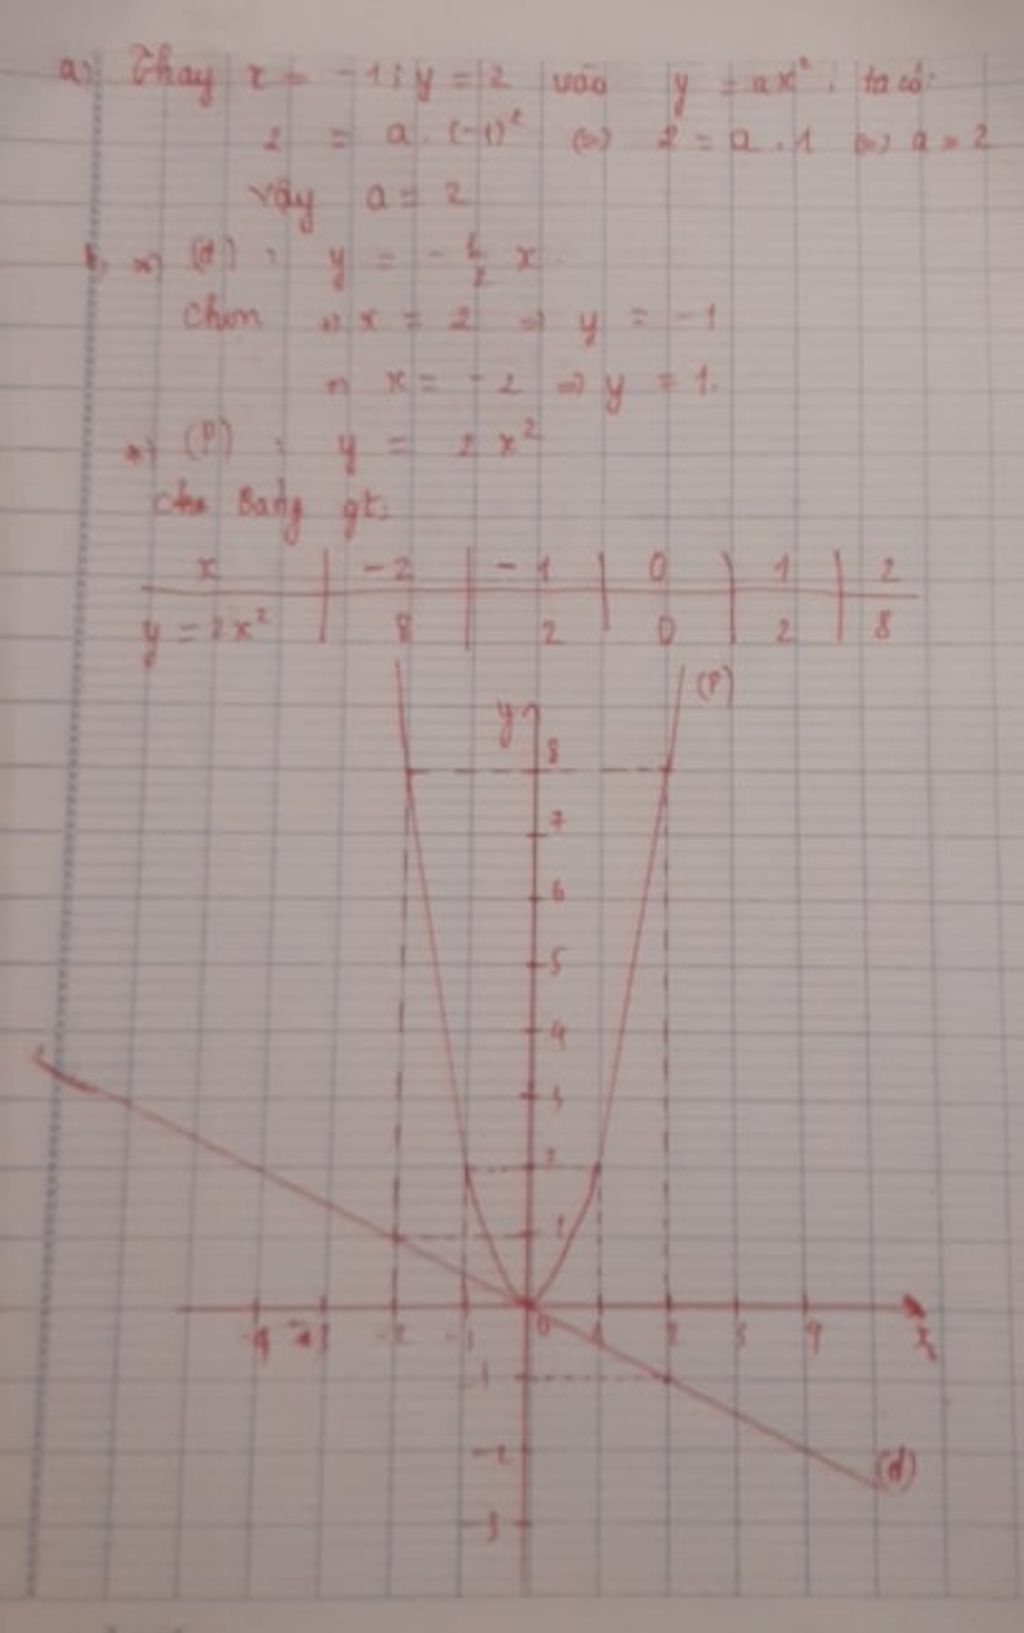 a) Thay x = -1; y = 2 vào y = ax², ta có:
2 = a . (-1)² (=) 2 = a . 1 (=) a = 2
Vậy a = 2
b, *) (d) : y = -1/2 x
Chọn x = 2 => y = -1
x = -2 => y = 1.
*) (P) : y = 2x²
Bảng gt:
x | -2 | -1 | 0 | 1 | 2
y = 2x² | 8 | 2 | 0 | 2 | 8
(P)
y
8
7
6
5
4
3
2
1
-4 -3 -2 -1 0 1 2 3 4 x
-1
-2
(d)
-3